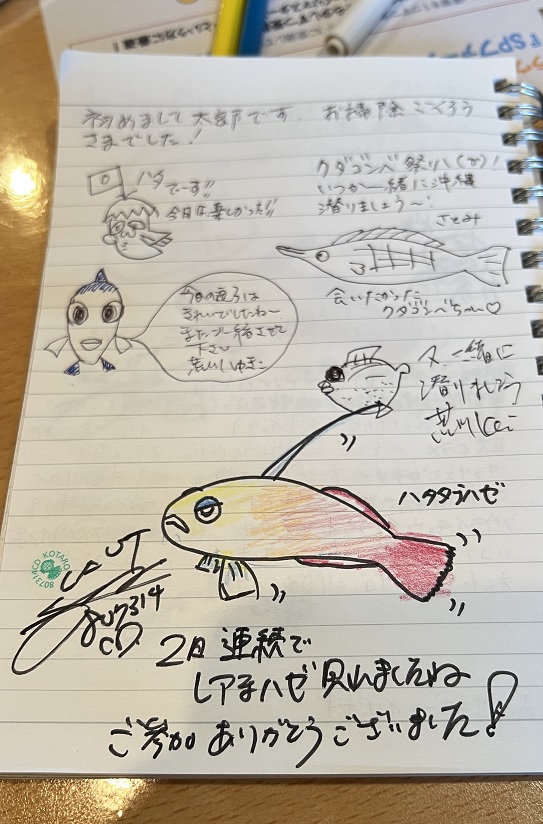 初めまして太郎です。お掃除ごくろう
さまでした!
ハタ
でーす!!
今日は楽しかった!!
クダゴンベ祭り
いつか一緒に沖縄
潜りましょう〜!
さとみ
会いたかった
クダゴンベちゃん♡
今日の
きれいでしたね〜
また 一緒させて
下さい
荒川しゆきこ
又一緒に
潜りましょう
ハタタテハゼ
KOTARO
2日連続で
レア子ハゼ見れましたね
ご参加ありがとうございました!